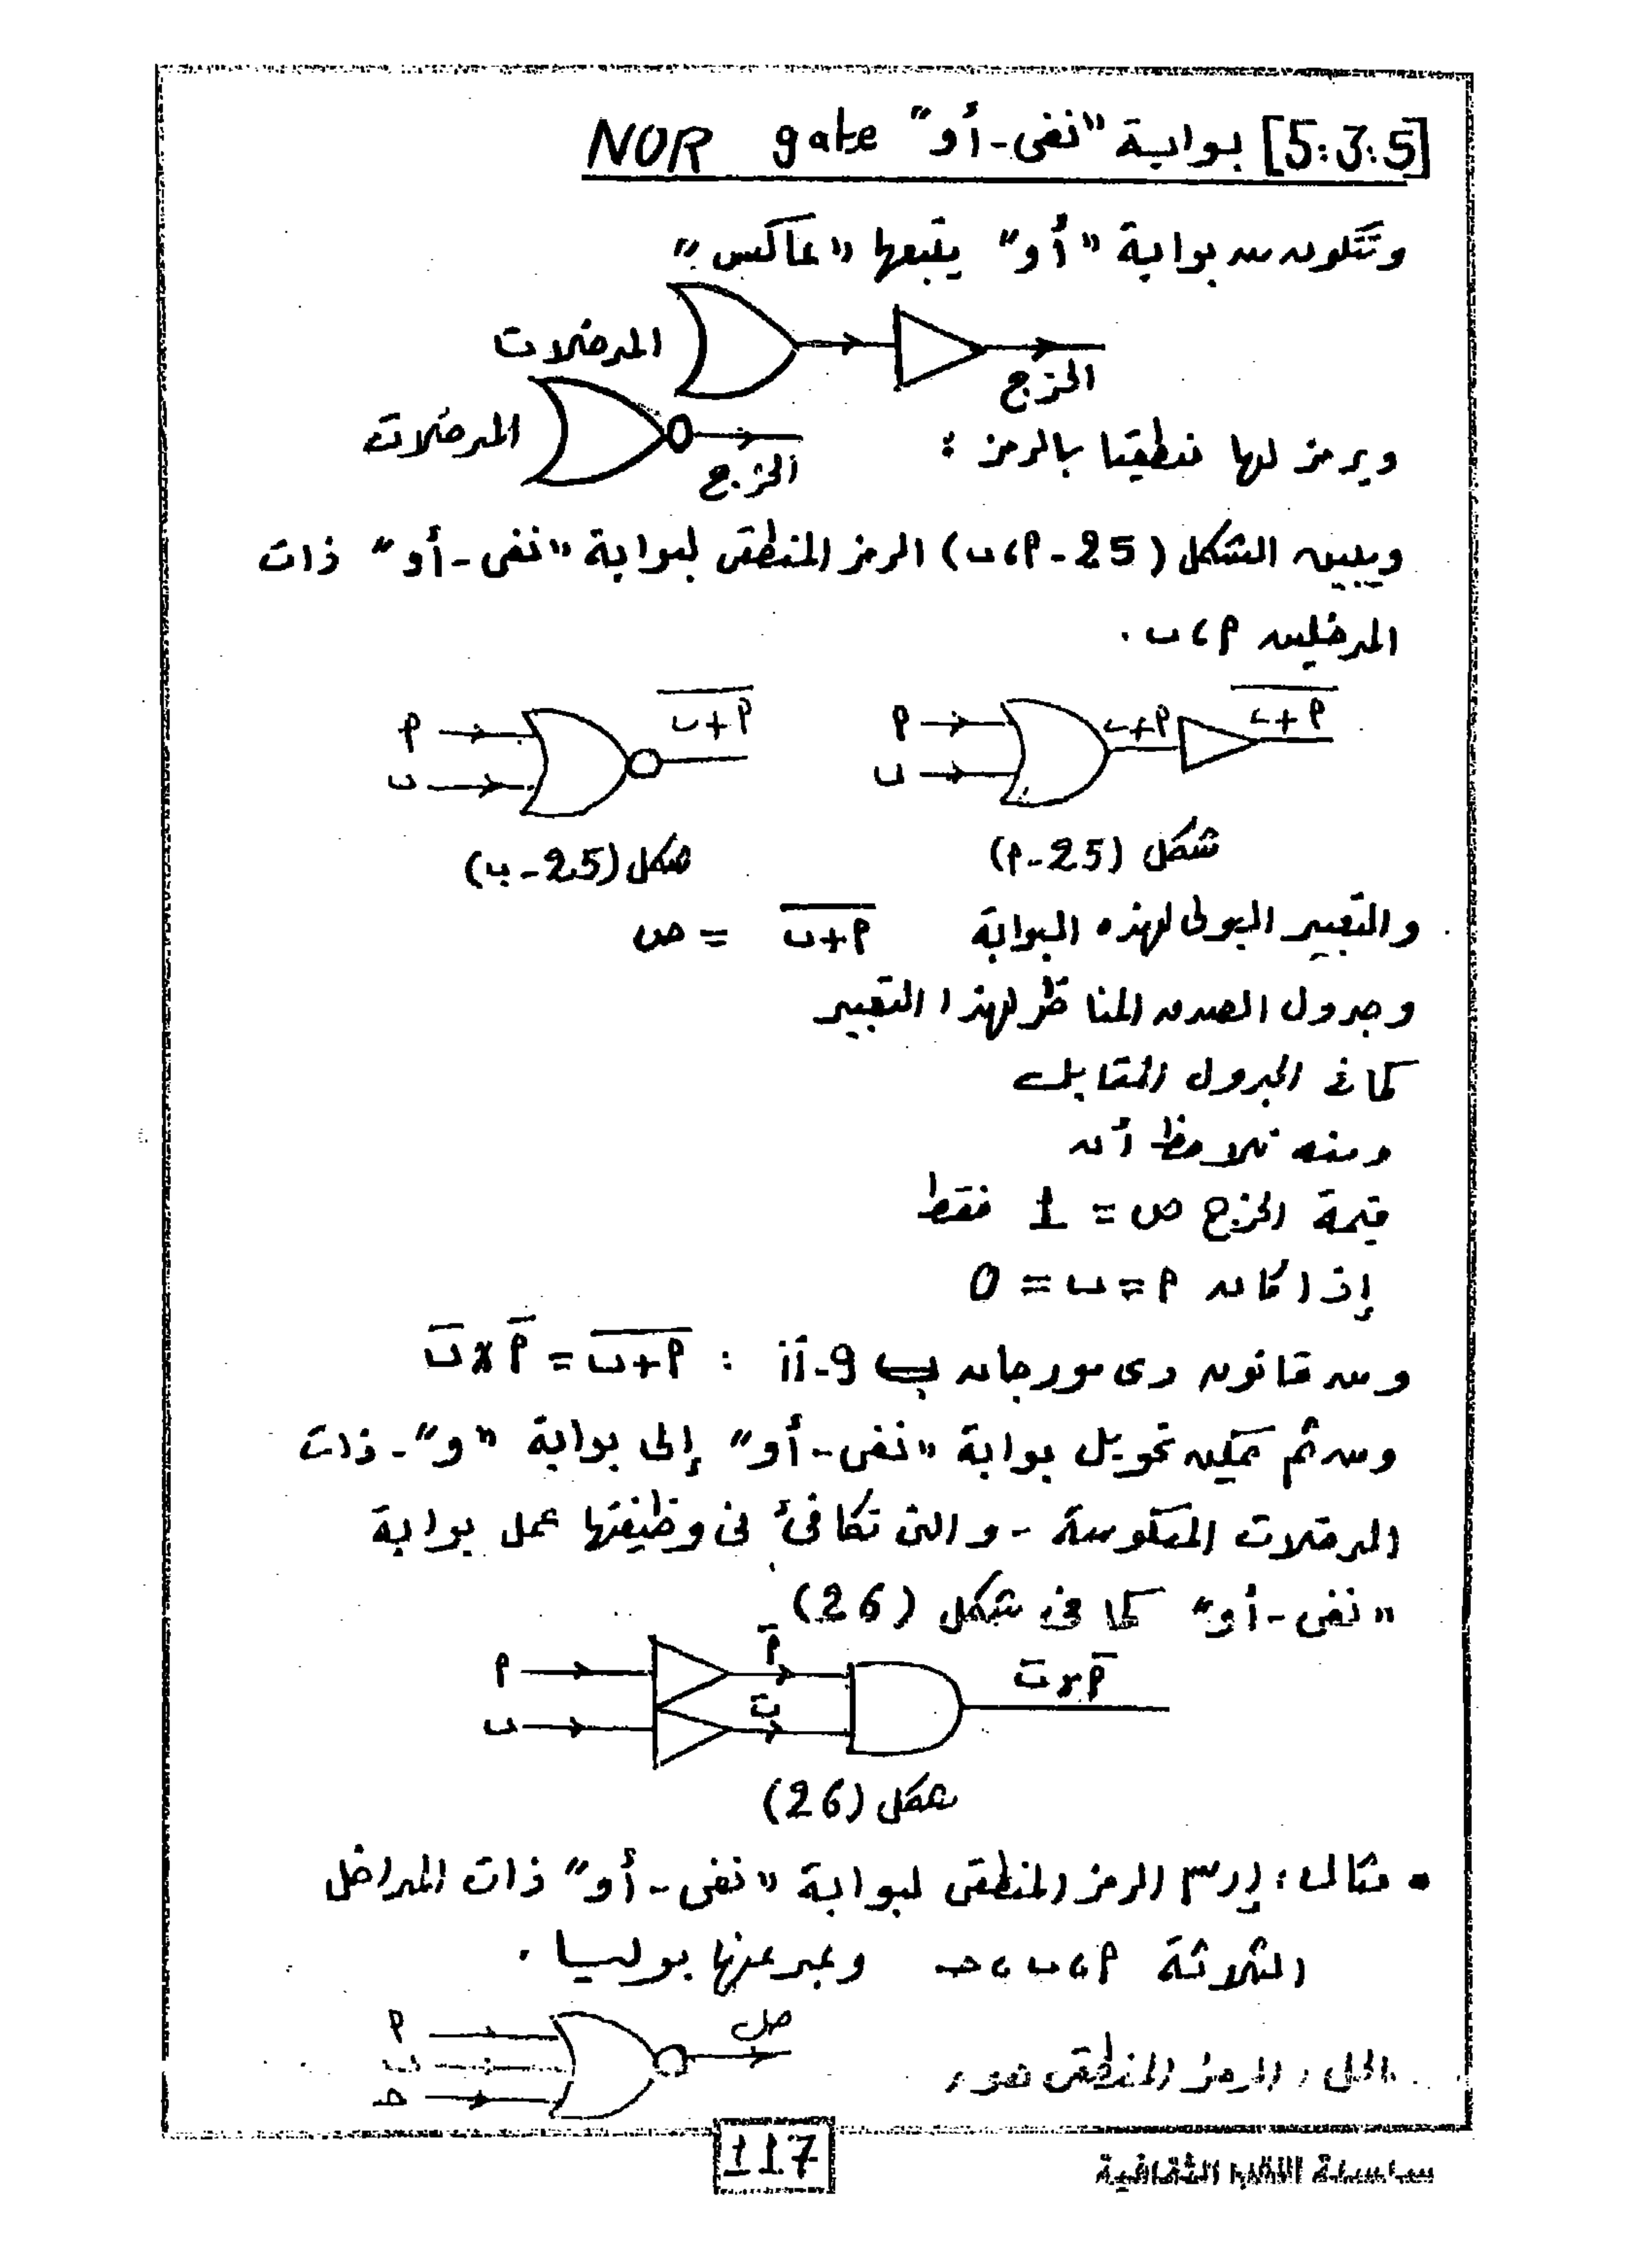 [5:3:5] بوابة "نفى-أو" NOR gate
وتتكون من بوابة "أو" يتبعها "عاكس"
المدخلات
الخرج
ويرمز لها منطقيا بالرمز :
المدخلات
الخرج
ويبين الشكل (25-أ،ب) الرمز المنطقى لبوابة "نفى-أو" ذات
المدخلين أ،ب .
أ
ب
أ+ب
أ+ب
شكل (25-أ)
أ
ب
أ+ب
شكل (25-ب)
والتعبير البولى لهذه البوابة أ+ب = ص
وجدول الصدق المناظر لهذا التعبير
كما فى الجدول المقابل
ومنه نلاحظ أن
قيمة الخرج ص = 1 فقط
إذا كان أ = ب = 0
ومن قانون دى مورجان ب 9-ii : <span style="text-decoration:overline">أ+ب</span> = أ̅ × ب̅
ومن ثم يمكن تحويل بوابة "نفى-أو" إلى بوابة "و"- ذات
المدخلات المعكوسة - والتى تكافئ فى وظيفتها عمل بوابة
"نفى-أو" كما فى شكل (26)
أ
ب
أ̅
ب̅
أ̅ × ب̅
شكل (26)
• مثال : إرسم الرمز المنطقى لبوابة "نفى-أو" ذات المداخل
الثلاثة أ،ب،حـ وعبر عنها بوليا .
الحل : الرمز المنطقى هو :
أ
ب
حـ
ص
117
سلسلة الثقافية